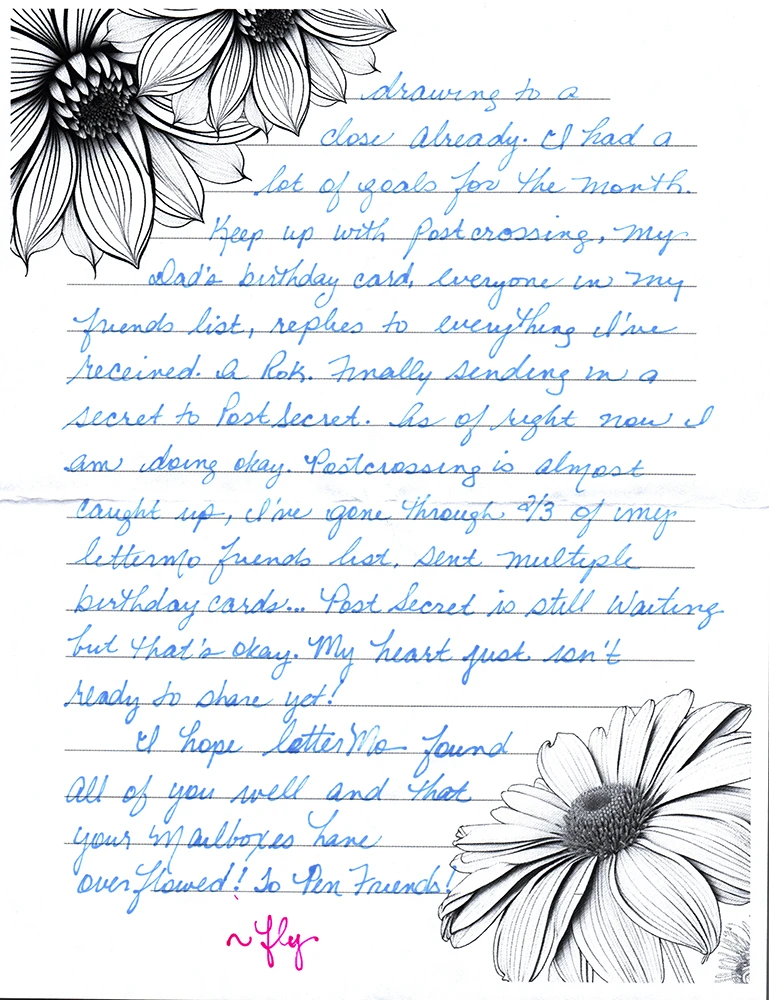 drawing to a
close already. I had a
lot of goals for the month.
Keep up with Postcrossing, my
Dad's birthday card, everyone in my
friends list, replies to everything I've
received. A RoK. Finally sending in a
secret to PostSecret. As of right now I
am doing okay. Postcrossing is almost
caught up, I've gone through 2/3 of my
letterMo friends list, sent multiple
birthday cards... Post Secret is still waiting
but that's okay. My heart just isn't
ready to share yet!
I hope letterMo found
all of you well and that
your mailboxes have
overflowed! To Pen Friends!
~ Fly